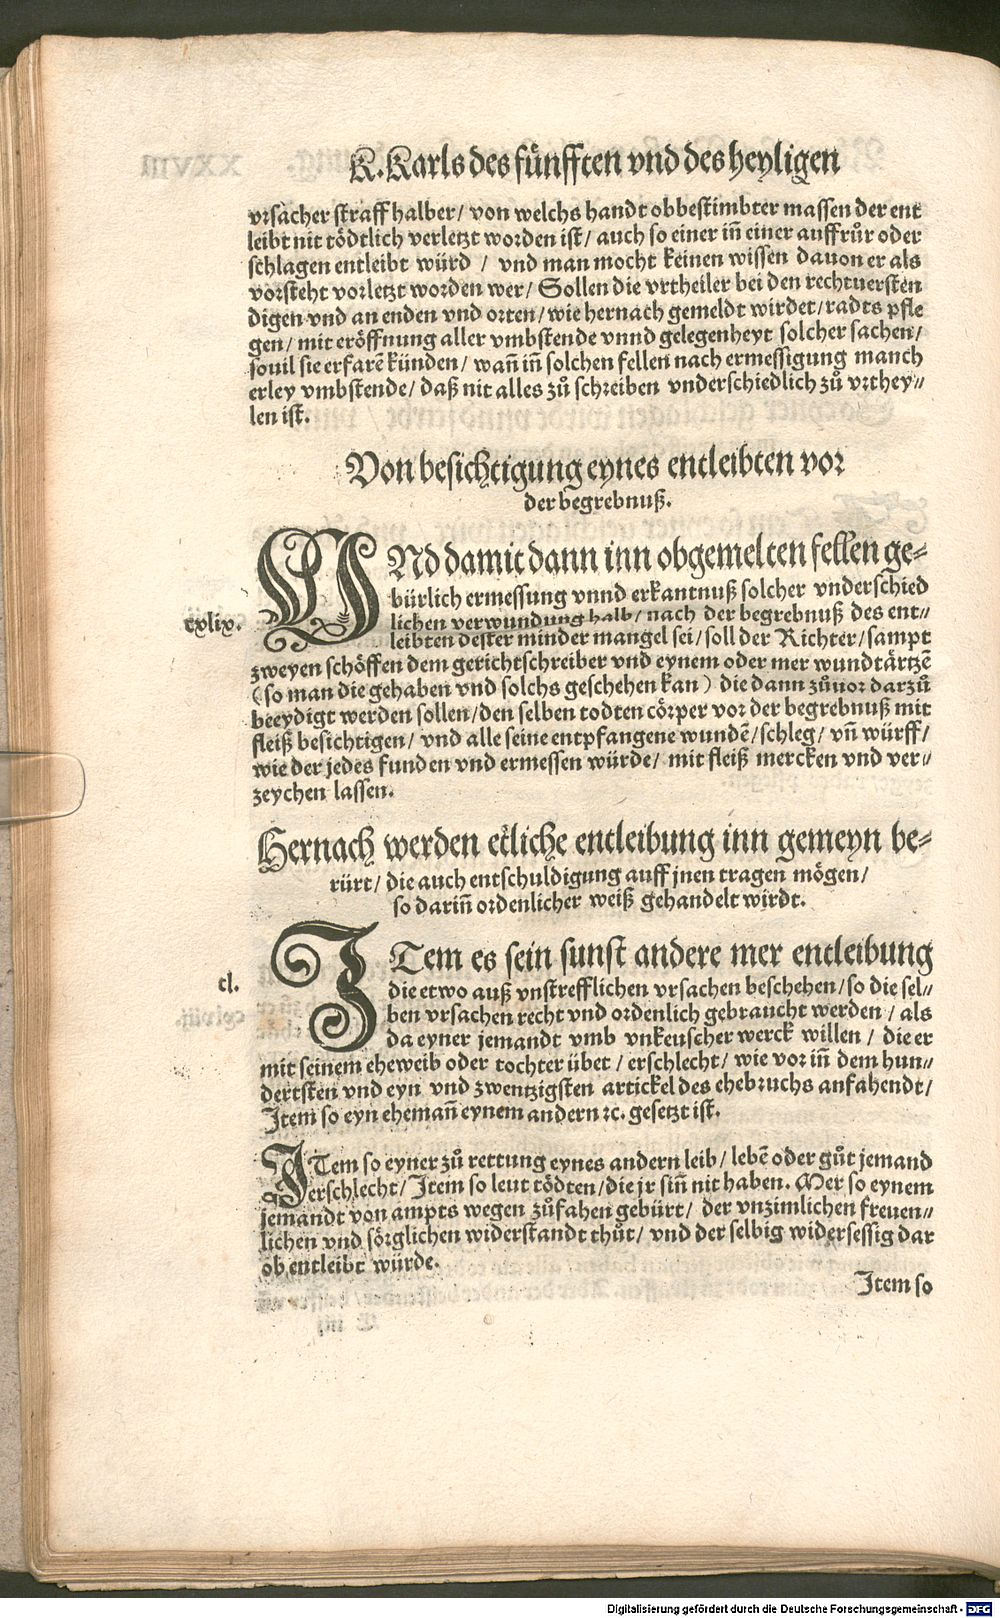 K. Karls des fünfften vnd des heyligen
vrsacher straff halber / von welchs handt obbestimbter massen der ent
leibt nit tödtlich verletzt worden ist / auch so einer iñ einer auffrůr oder
schlagen entleibt würd / vnd man mocht keinen wissen dauon er als
vorsteht vorletzt worden wer / Sollen die vrtheiler bei den rechtuersten
digen vnd an enden vnd orten / wie hernach gemeldt wirdet / radts pfle
gen / mit eröffnung aller vmbstende vnnd gelegenheyt solcher sachen /
souil sie erfarē künden / wañ iñ solchen fellen nach ermessigung manch
erley vmbstende / daß nit alles zů schreiben vnderschiedlich zů vrthey⸗
len ist.
Von besichtigung eynes entleibten vor
der begrebnuß.
VNd damit dann inn obgemelten fellen ge⸗
bürlich ermessung vnnd erkantnuß solcher vnderschied
cxlix.
lichen verwundung halb / nach der begrebnuß des ent⸗
leibten dester minder mangel sei / soll der Richter / sampt
zweyen schöffen dem gerichtschreiber vnd eynem oder mer wundtärtzē
(so man die gehaben vnd solchs geschehen kan) die dann zůuor darzů
beeydigt werden sollen / den selben todten cörper vor der begrebnuß mit
fleiß besichtigen / vnd alle seine entpfangene wundē / schleg / vñ würff /
wie der jedes funden vnd ermessen würde / mit fleiß mercken vnd ver⸗
zeychen lassen.
Hernach werden etliche entleibung inn gemeyn be⸗
rürt / die auch entschuldigung auff jnen tragen mögen /
so dariñ ordenlicher weiß gehandelt wirdt.
ITem es sein sunst andere mer entleibung
cl.
die etwo auß vnstrefflichen vrsachen beschehen / so die sel⸗
ben vrsachen recht vnd ordenlich gebraucht werden / als
da eyner jemandt vmb vnkeuscher werck willen / die er
mit seinem eheweib oder tochter übet / erschlecht / wie vor iñ dem hun⸗
dertsten vnd eyn vnd zwentzigsten artickel des ehebruchs anfahendt /
Item so eyn ehemañ eynem andern ⁊c. gesetzt ist.
ITem so eyner zů rettung eynes andern leib / lebē oder gůt jemand
erschlecht / Item so leut tödten / die jr siñ nit haben. Mer so eynem
jemandt von ampts wegen zůfahen gebürt / der vnzimlichen freuen⸗
lichen vnd sörglichen widerstandt thůt / vnd der selbig widersessig dar
ob entleibt würde.
Item so
Digitalisierung gefördert durch die Deutsche Forschungsgemeinschaft - DFG